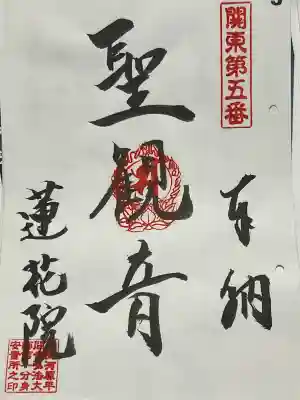 関東第五番
奉納
聖觀音
蓮花院